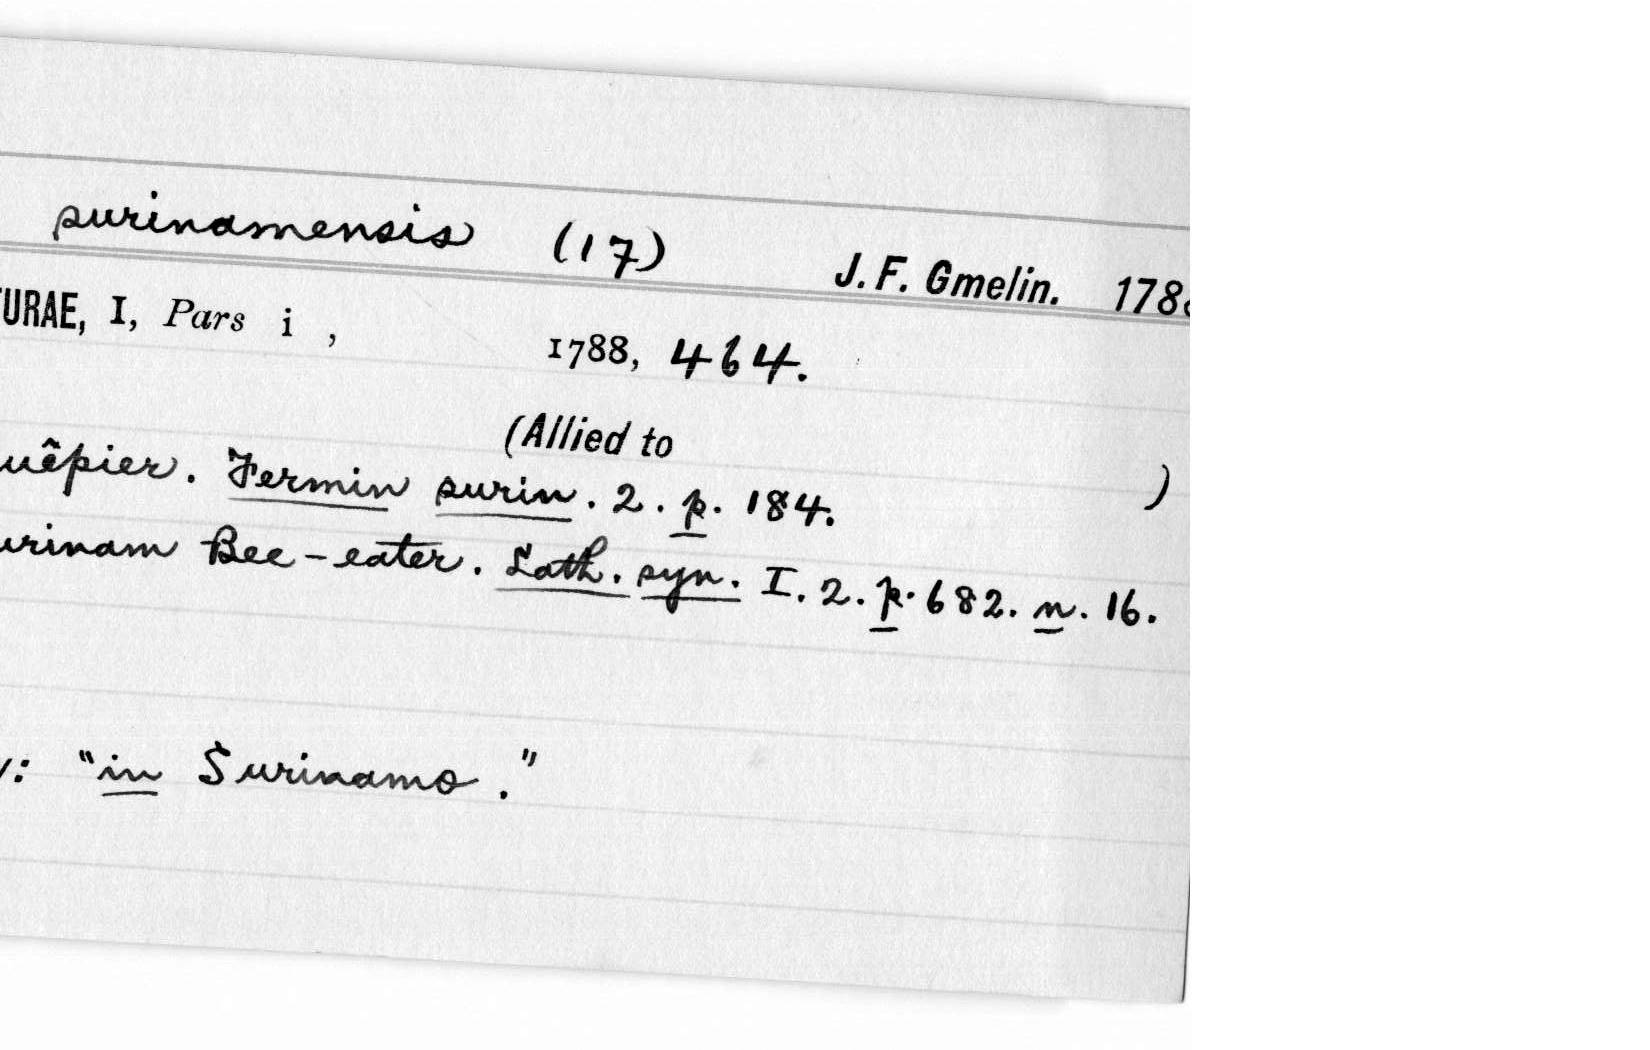 surinamensis (17) J. F. Gmelin. 178
URAE, I, Pars i , 1788, 464.
(Allied to )
uêpier. Fermin surin. 2. p. 184.
urinam Bee-eater. Lath. syn. I. 2. p. 682. n. 16.
: "in Surinamo."